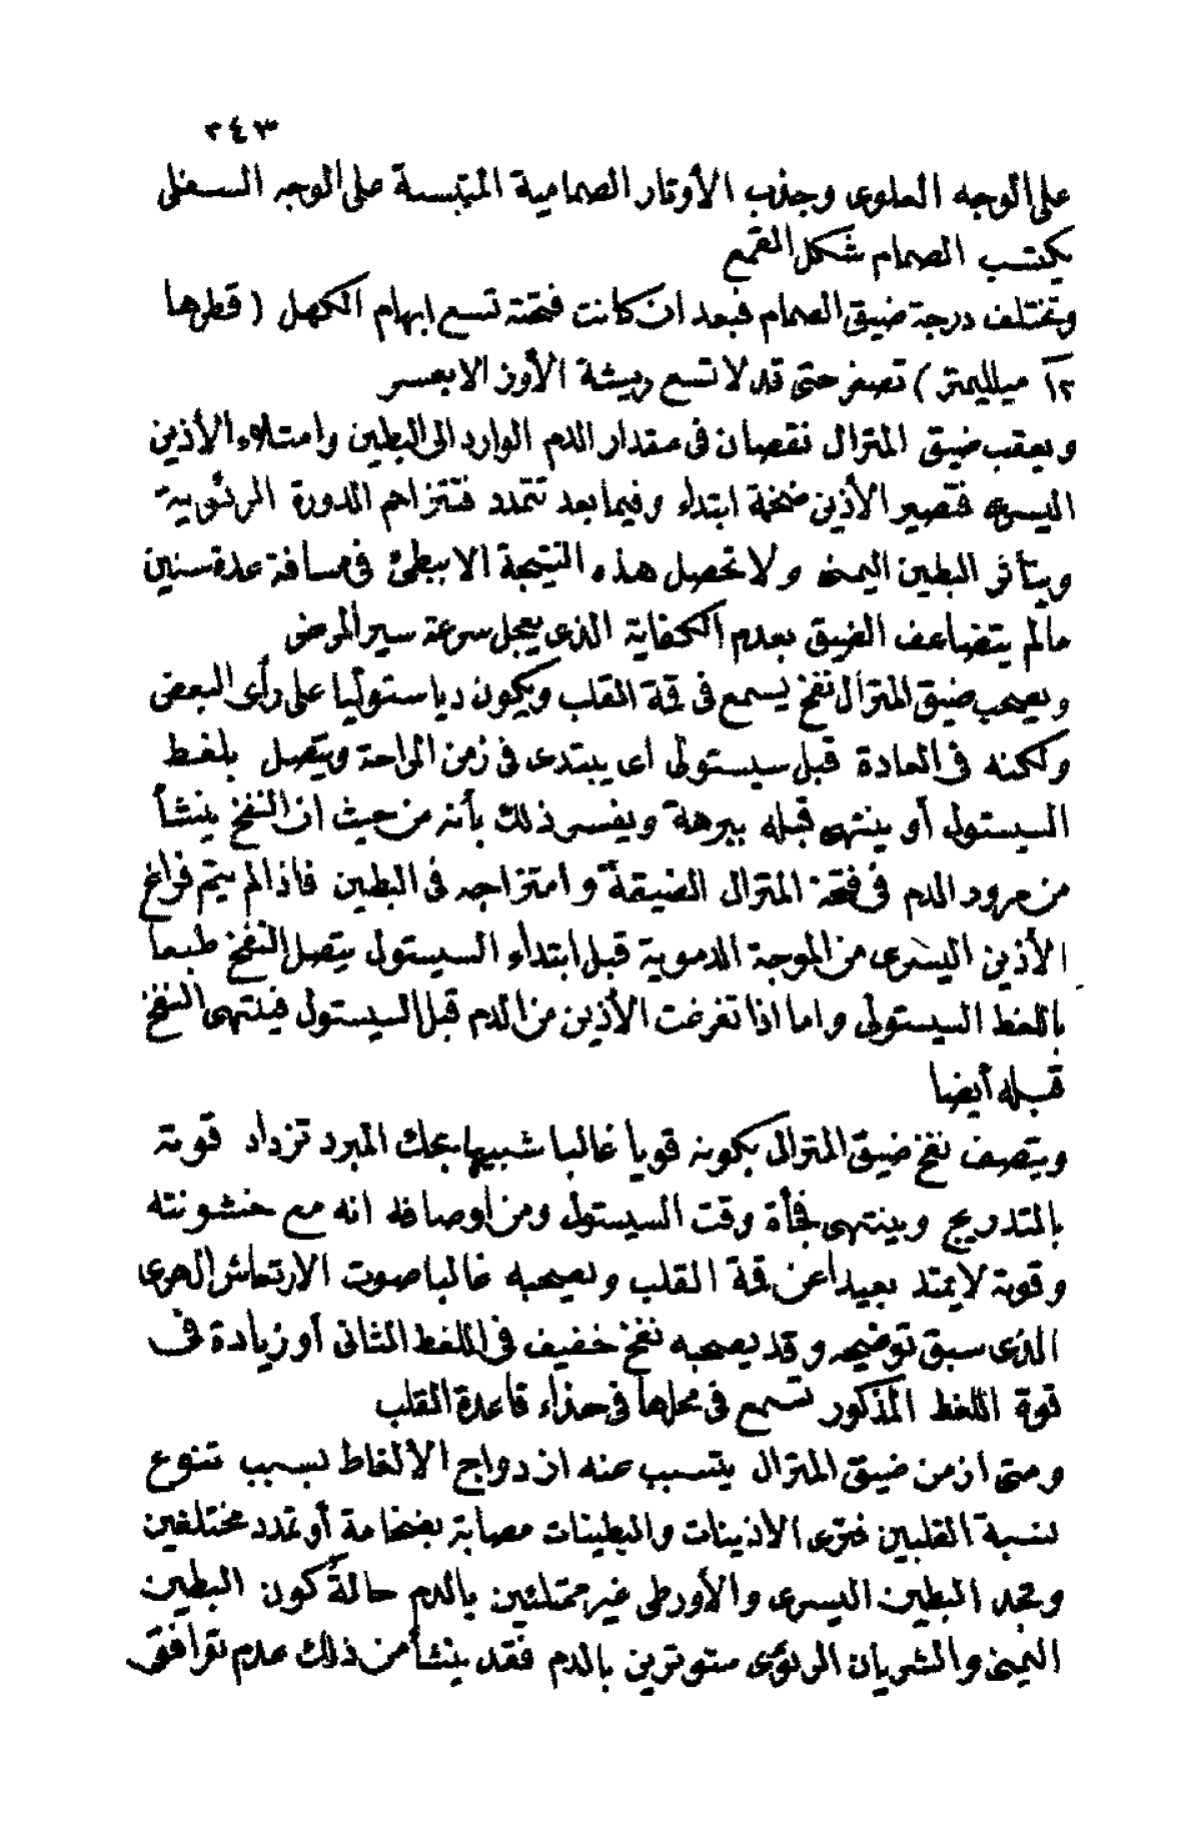 ٢٤٣
على الوجه العلوى وجذب الأوتار الصمامية المتيبسة على الوجه السفلى
يكتسب الصمام شكل القمع
وتختلف درجة ضيق الصمام فبعد ان كانت فتحته تسع ابهام الكهل ( قطرها
١٢ ميلليمتر ) تصغر حتى قد لا تسع ريشة الأوز الا بعسر
ويعقب ضيق المترال نقصان فى مقدار الدم الوارد الى البطين وامتلاء الأذين
اليسرى فتصير الأذين ضخمة ابتداء وفيما بعد تتمدد فتتزاحم الدورة الرئوية
ويتأثر البطين اليمنى ولا تحصل هذه النتيجة الا ببطئ فى مسافة عدة سنين
مالم يتضاعف الضيق بعدم الكفاية الذى يعجل سرعة سير المرض
ويصحب ضيق المترال نفخ يسمع فى قمة القلب ويكون دياستوليا على رأى البعض
ولكنه فى العادة قبل سيستولى اى يبتدى فى زمن الراحة ويتصل بلغط
السيستول أو ينتهى قبله ببرهة ويفسر ذلك بأنه من حيث ان النفخ ينشأ
من مرور الدم فى فتحة المترال الضيقة وامتزاجه فى البطين فاذا لم يتم فراغ
الأذين اليسرى من الموجة الدموية قبل ابتداء السيستول يتصل النفخ طبعا
باللغط السيستولى واما اذا تفرغت الأذين من الدم قبل السيستول فينتهى النفخ
قبله أيضا
ويتصف نفخ ضيق المترال بكونه قويا غالبا شبيها بحك المبرد تزداد قوته
بالتدريج وينتهى فجأة وقت السيستول ومن اوصافه انه مع خشونته
وقوته لا يمتد بعيدا عن قمة القلب ويصحبه غالبا صوت الارتعاش الهرى
الذى سبق توضيحه وقد يصحبه نفخ خفيف فى اللغط الثانى أو زيادة فى
قوة اللغط المذكور تسمع فى محلها فى حذاء قاعدة القلب
ومتى ازمن ضيق المترال يتسبب عنه ازدواج الالغاط بسبب تنوع
نسبة القلبين فترى الأذينات والبطينات مصابة بضخامة أو تمدد مختلفين
وتجد البطين اليسرى والأورطى غير ممتلئين بالدم حالة كون البطين
اليمنى والشريان الرئوى متوترين بالدم فقد ينشأ من ذلك عدم توافق